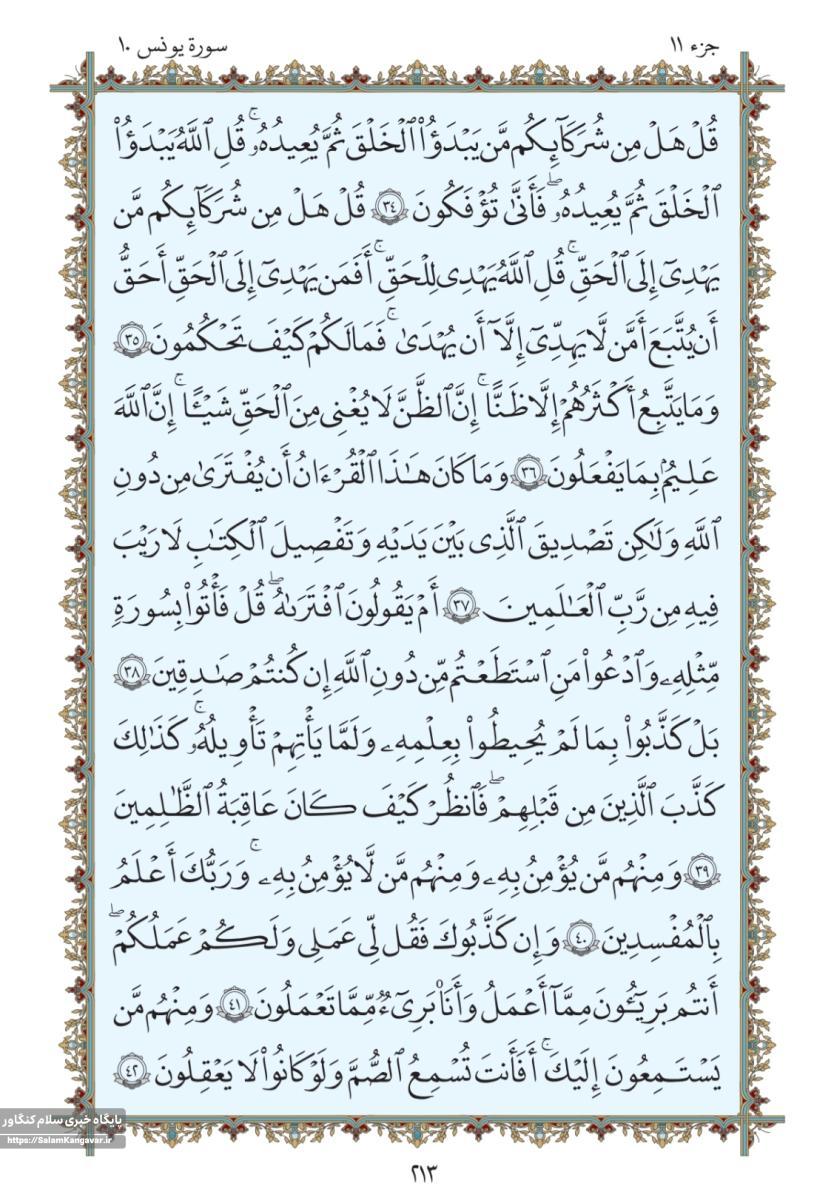 جزء ۱۱
سورة يونس ۱۰
قُلْ هَلْ مِن شُرَكَآئِكُم مَّن يَبْدَؤُا۟ ٱلْخَلْقَ ثُمَّ يُعِيدُهُۥ ۚ قُلِ ٱللَّهُ يَبْدَؤُا۟
ٱلْخَلْقَ ثُمَّ يُعِيدُهُۥ ۖ فَأَنَّىٰ تُؤْفَكُونَ ﴿٣٤﴾ قُلْ هَلْ مِن شُرَكَآئِكُم مَّن
يَهْدِىٓ إِلَى ٱلْحَقِّ ۚ قُلِ ٱللَّهُ يَهْدِى لِلْحَقِّ ۗ أَفَمَن يَهْدِىٓ إِلَى ٱلْحَقِّ أَحَقُّ
أَن يُتَّبَعَ أَمَّن لَّا يَهِدِّىٓ إِلَّآ أَن يُهْدَىٰ ۖ فَمَا لَكُمْ كَيْفَ تَحْكُمُونَ ﴿٣٥﴾
وَمَا يَتَّبِعُ أَكْثَرُهُمْ إِلَّا ظَنًّا ۚ إِنَّ ٱلظَّنَّ لَا يُغْنِى مِنَ ٱلْحَقِّ شَيْـًٔا ۚ إِنَّ ٱللَّهَ
عَلِيمٌۢ بِمَا يَفْعَلُونَ ﴿٣٦﴾ وَمَا كَانَ هَـٰذَا ٱلْقُرْءَانُ أَن يُفْتَرَىٰ مِن دُونِ
ٱللَّهِ وَلَـٰكِن تَصْدِيقَ ٱلَّذِى بَيْنَ يَدَيْهِ وَتَفْصِيلَ ٱلْكِتَـٰبِ لَا رَيْبَ
فِيهِ مِن رَّبِّ ٱلْعَـٰلَمِينَ ﴿٣٧﴾ أَمْ يَقُولُونَ ٱفْتَرَىٰهُ ۖ قُلْ فَأْتُوا۟ بِسُورَةٍ
مِّثْلِهِۦ وَٱدْعُوا۟ مَنِ ٱسْتَطَعْتُم مِّن دُونِ ٱللَّهِ إِن كُنتُمْ صَـٰدِقِينَ ﴿٣٨﴾
بَلْ كَذَّبُوا۟ بِمَا لَمْ يُحِيطُوا۟ بِعِلْمِهِۦ وَلَمَّا يَأْتِهِمْ تَأْوِيلُهُۥ ۚ كَذَٰلِكَ
كَذَّبَ ٱلَّذِينَ مِن قَبْلِهِمْ ۖ فَٱنظُرْ كَيْفَ كَانَ عَـٰقِبَةُ ٱلظَّـٰلِمِينَ
﴿٣٩﴾ وَمِنْهُم مَّن يُؤْمِنُ بِهِۦ وَمِنْهُم مَّن لَّا يُؤْمِنُ بِهِۦ ۚ وَرَبُّكَ أَعْلَمُ
بِٱلْمُفْسِدِينَ ﴿٤٠﴾ وَإِن كَذَّبُوكَ فَقُل لِّى عَمَلِى وَلَكُمْ عَمَلُكُمْ ۖ
أَنتُم بَرِيٓـُٔونَ مِمَّآ أَعْمَلُ وَأَنَا۠ بَرِىٓءٌ مِّمَّا تَعْمَلُونَ ﴿٤١﴾ وَمِنْهُم مَّن
يَسْتَمِعُونَ إِلَيْكَ ۚ أَفَأَنتَ تُسْمِعُ ٱلصُّمَّ وَلَوْ كَانُوا۟ لَا يَعْقِلُونَ ﴿٤٢﴾
پایگاه خبری سلام کنگاور
https://SalamKangavar.ir
۲۱۳